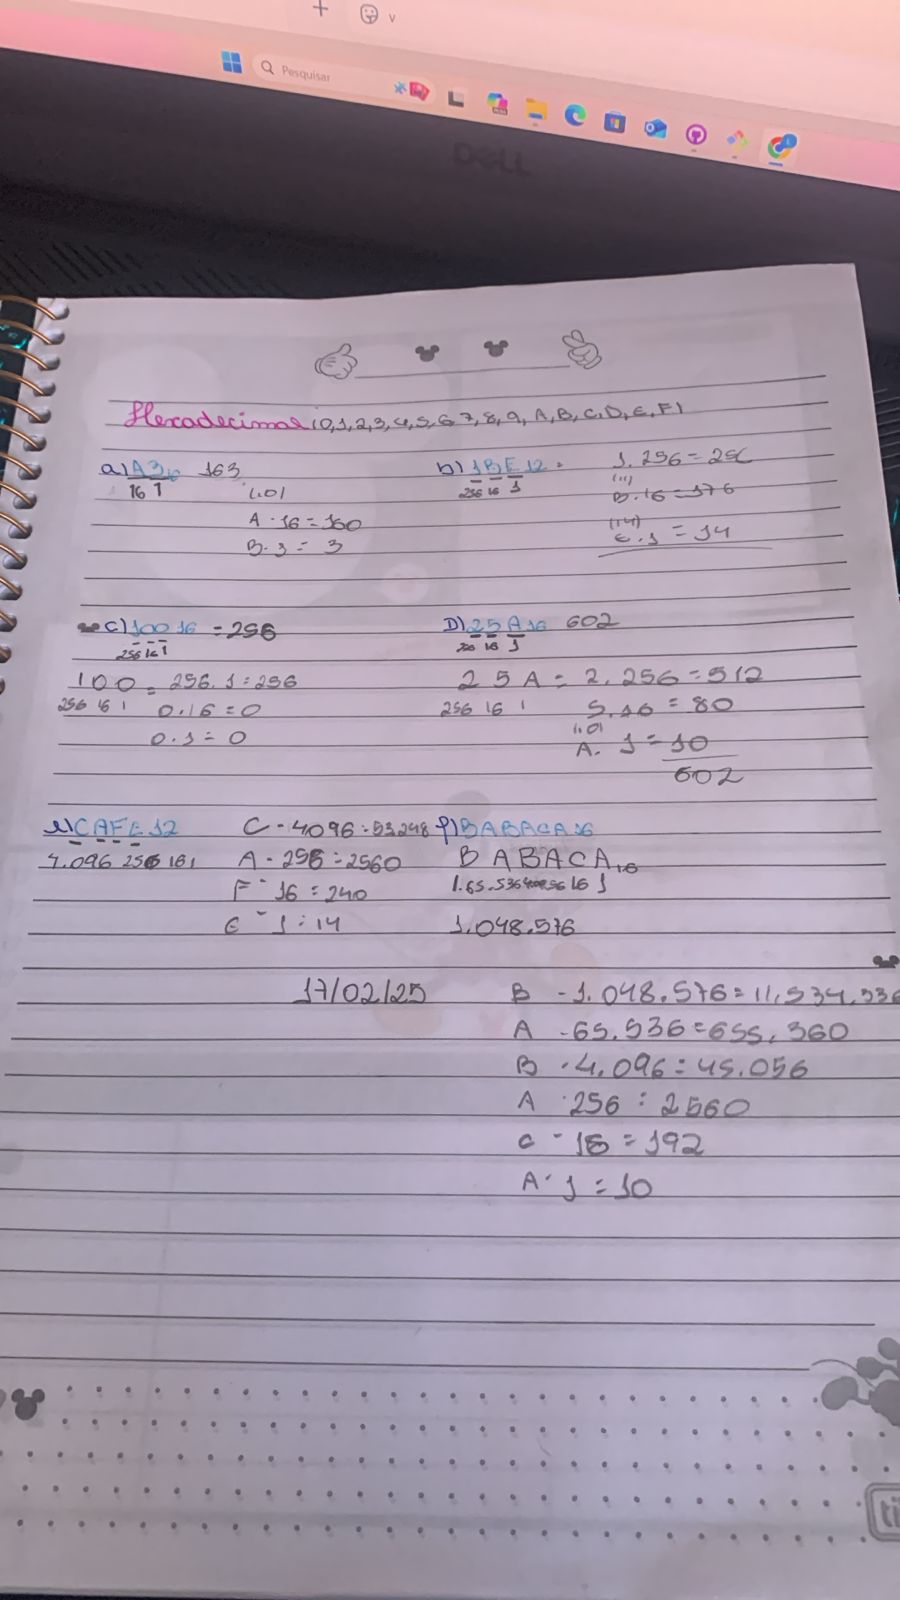 Pesquisar
DELL
Hexadecimal (0,1,2,3,4,5,6,7,8,9,A,B,C,D,E,F)
a) A3₁₆ 163
16 1
(10)
A · 16 = 160
B · 1 = 3
b) 1BE 12 =
256 16 1
1. 256 = 256
(11)
B. 16 = 176
(14)
E. 1 = 14
c) 100 16 = 256
256 16 1
100 = 256. 1 = 256
256 16 1 0.16 = 0
0.1 = 0
D) 25A16 602
256 16 1
25A = 2. 256 = 512
256 16 1 5. 16 = 80
(10)
A. 1 = 10
602
e) CAFE 12
4.096 256 16 1
C - 4096 = 53248
A - 256 = 2560
F - 16 = 240
E - 1 = 14
f) BABACA 16
BABACA₁₆
1.65.536 4096 256 16 1
1.048.576
17/02/25
B - 1.048.576 = 11.534.336
A - 65.536 = 655.360
B · 4.096 = 45.056
A · 256 = 2560
C - 16 = 192
A · 1 = 10
ti